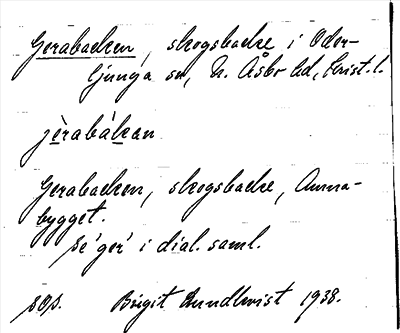 Gerabacken, skogsbacke i Oder-
ljunga sn, N. Åsbo hd, Krist. l.
jèrabákan
Gerabacken, skogsbacke, Anna-
bygget.
se 'ger' i dial. saml.
sop. Birgit Rundkvist 1938.